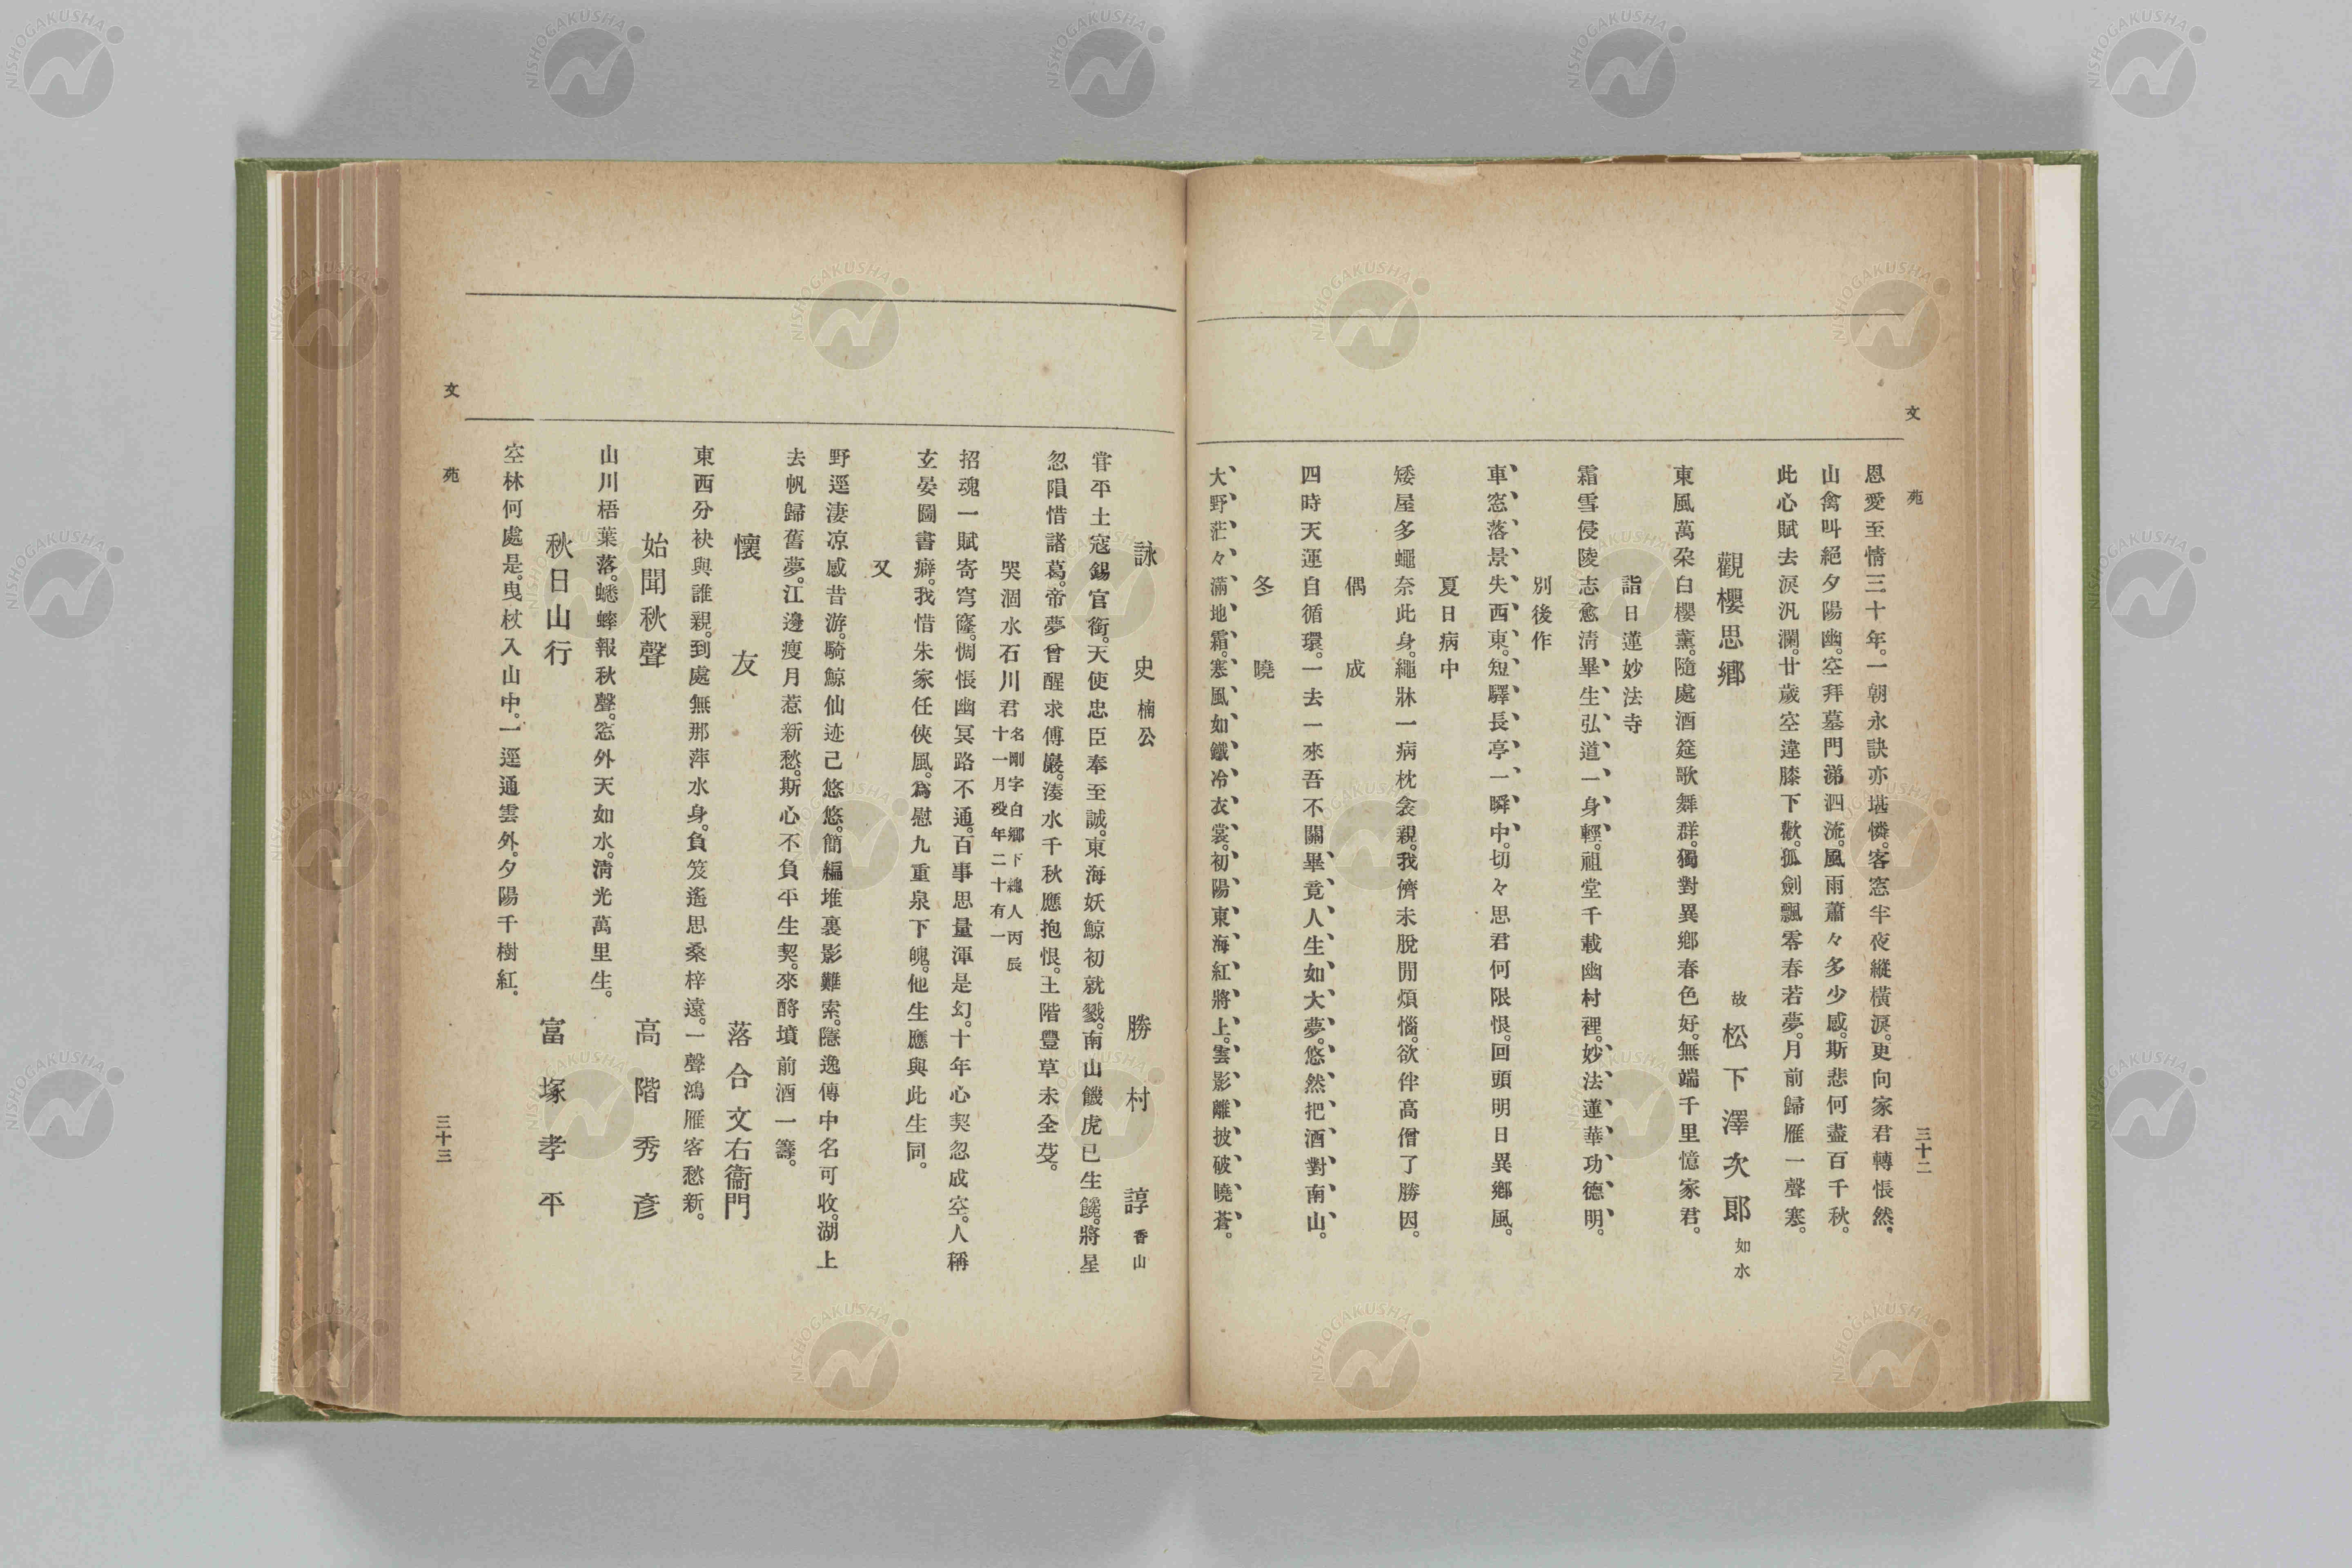 文苑
三十二
恩愛至情三十年。一朝永訣亦堪憐。客窓半夜縱橫淚。更向家君轉悵然。
山禽叫絕夕陽幽。空拜墓門涕泗流。風雨蕭々多少感。斯悲何盡百千秋。
此心賦去淚汎瀾。廿歲空違膝下歡。孤劍飄零春若夢。月前歸雁一聲寒。
觀櫻思鄉 故 松下澤次郞 如水
東風萬朶白櫻薰。隨處酒筵歌舞群。獨對異鄉春色好。無端千里憶家君。
詣日蓮妙法寺
霜雪侵陵志愈淸。畢生弘道一身輕。祖堂千載幽村裡。妙法蓮華功德明。
別後作
車窓落景失西東。短驛長亭一瞬中。切々思君何限恨。回頭明日異鄉風。
夏日病中
矮屋多蠅奈此身。繩牀一病枕衾親。我儕未脫閒煩惱。欲伴高僧了勝因。
偶成
四時天運自循環。一去一來吾不關。畢竟人生如大夢。悠然把酒對南山。
冬曉
大野茫々滿地霜。寒風如鐵冷衣裳。初陽東海紅將上。雲影離披破曉蒼。
詠史 楠公 勝村諄 香山
甞平土寇錫官銜。天使忠臣奉至誠。東海妖鯨初就戮。南山饑虎已生饞。將星
忽隕惜諸葛。帝夢曾醒求傅巖。湊水千秋應抱恨。王階豐草未全芟。
哭涸水石川君 名剛字白鄉下總人丙辰十一月歿年二十有一
招魂一賦寄穹窿。惆悵幽冥路不通。百事思量渾是幻。十年心契忽成空。人稱
玄晏圖書癖。我惜朱家任俠風。爲慰九重泉下魄。他生應與此生同。
又
野逕淒凉感昔游。騎鯨仙迹已悠悠。簡編堆裏影難索。隱逸傳中名可收。湖上
去帆歸舊夢。江邊瘦月惹新愁。斯心不負平生契。來酹墳前酒一籌。
懷友 落合文右衞門
東西分袂與誰親。到處無那萍水身。負笈遙思桑梓遠。一聲鴻雁客愁新。
始聞秋聲 高階秀彥
山川梧葉落。蟋蟀報秋聲。窓外天如水。淸光萬里生。
秋日山行 富塚孝平
空林何處是。曳杖入山中。一逕通雲外。夕陽千樹紅。
文苑
三十三